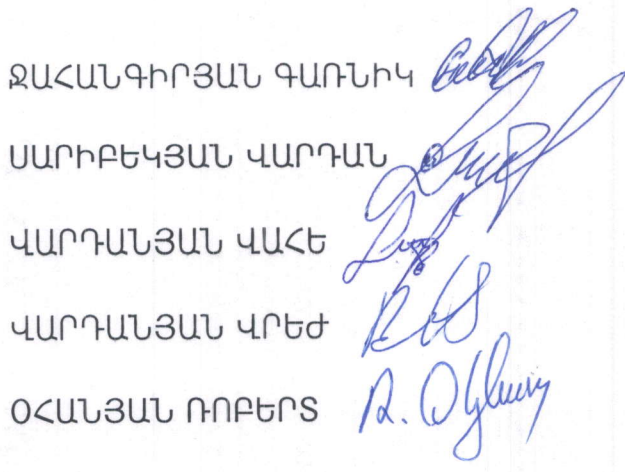 ՋԱՀԱՆԳԻՐՅԱՆ ԳԱՌՆԻԿ
ՍԱՐԻԲԵԿՅԱՆ ՎԱՐԴԱՆ
ՎԱՐԴԱՆՅԱՆ ՎԱՀԵ
ՎԱՐԴԱՆՅԱՆ ՎՐԵԺ
ՕՀԱՆՅԱՆ ՌՈԲԵՐՏ